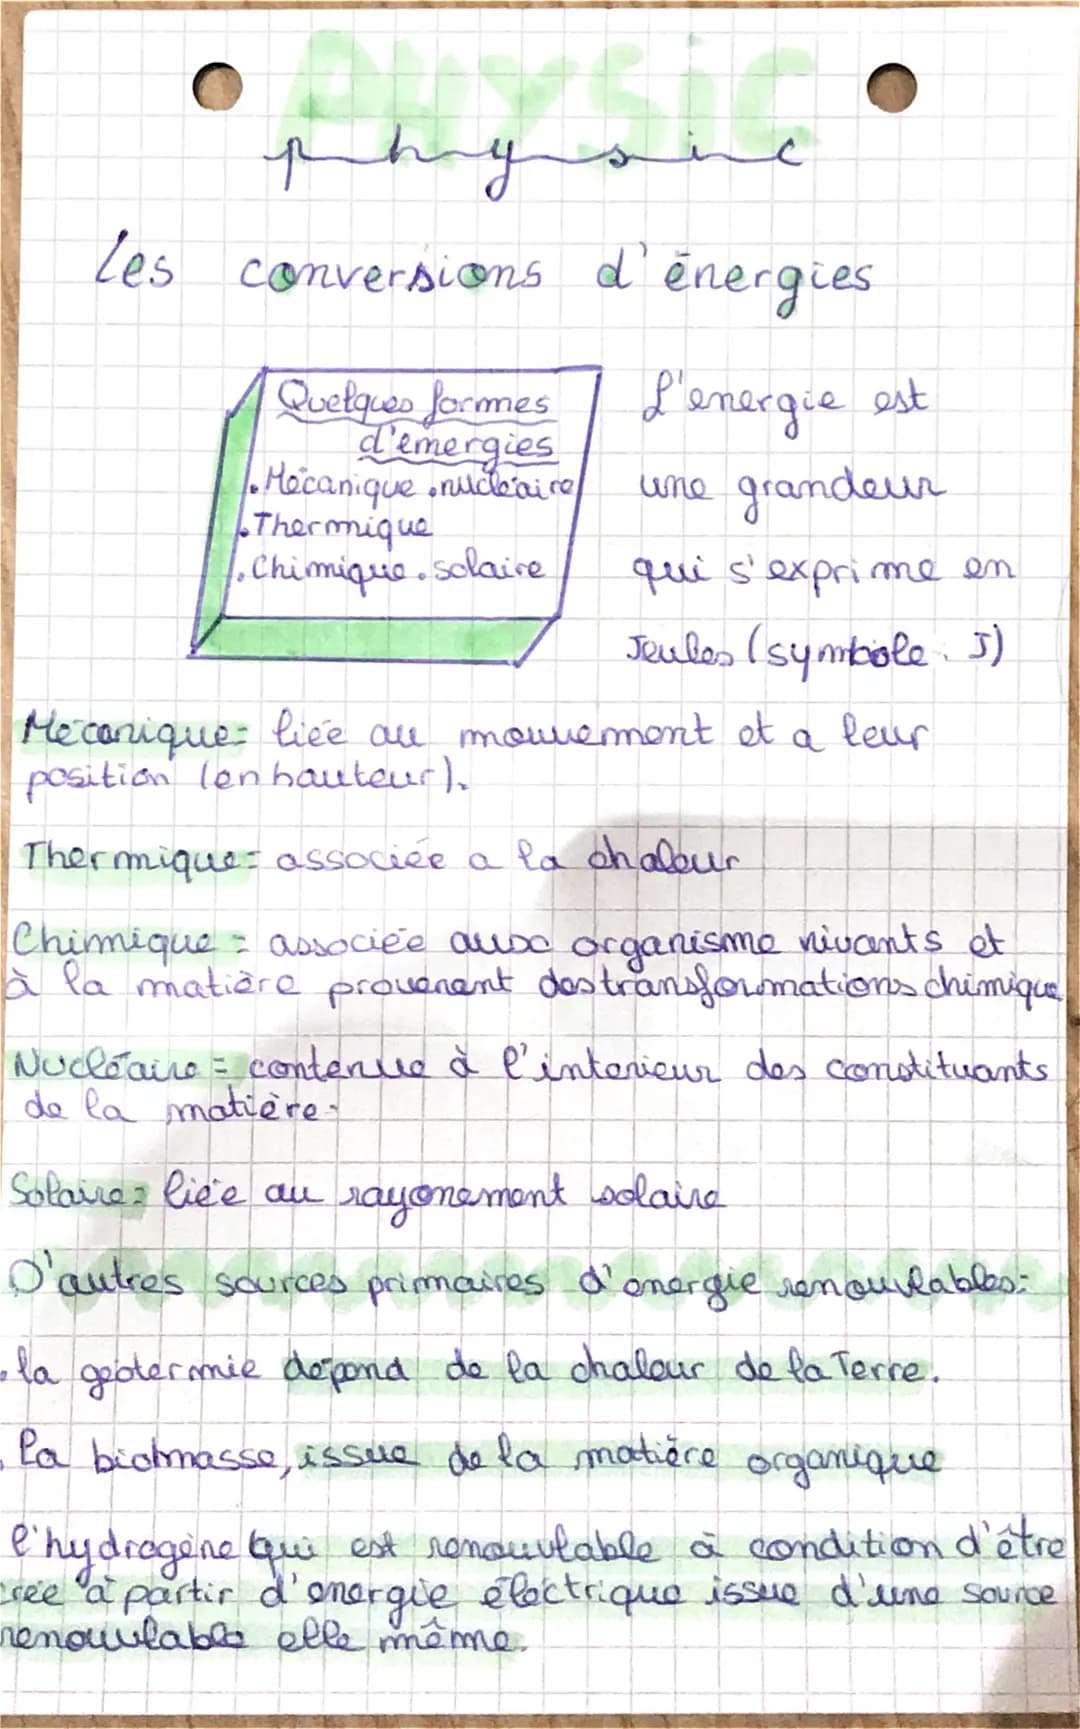 PHYSIC
physic
Les conversions d'énergies
Quelques formes
d'émergies
.Mécanique .nucléaire
.Thermique
.Chimique .solaire
L'energie est
une grandeur
qui s'exprime en
Jeules (symbole . J)
Mécanique= liée au mouvement et a leur
position (en hauteur).
Thermique= associée a la chaleur
Chimique = associée aux organisme vivants et
à la matière provenant des transformations chimique
Nucléaire = contenue à l'interieur des constituants
de la matière.
Solaire= liée au rayonement solaire
D'autres sources primaires d'energie renouvlables:
.la geotermie dépend de la chaleur de la Terre.
.la biomasse, issue de la matière organique
l'hydrogéne qui est renouvlable à condition d'être
crée à partir d'energie électrique issue d'une source
renouvlable elle même.